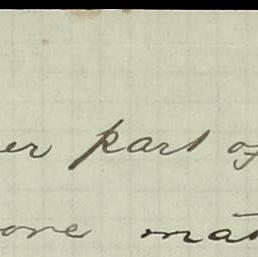 er part of
ore mat